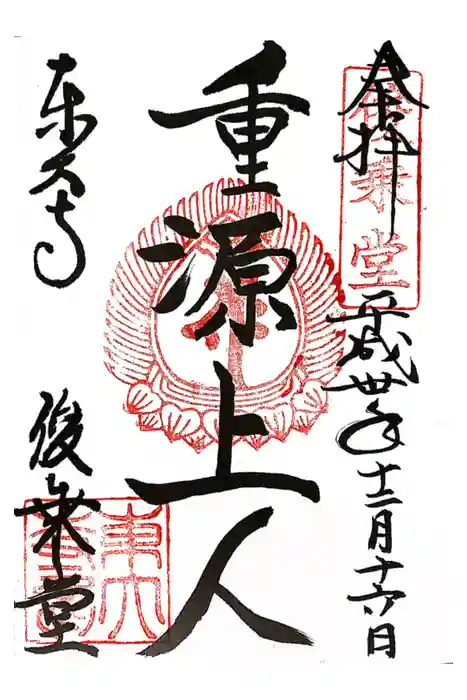 奉拝
俊乗堂
平成卅年十二月十六日
重源上人
東大寺
俊乗堂